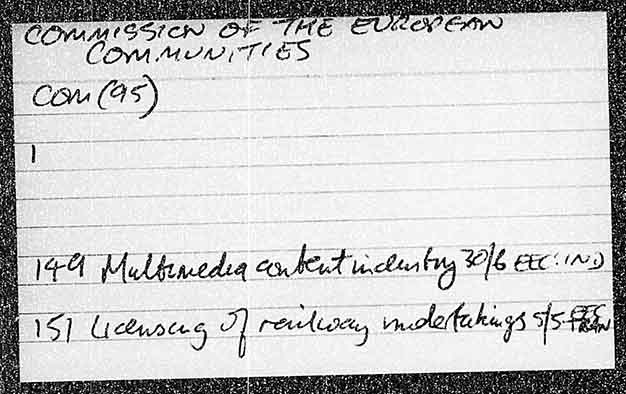 COMMISSION OF THE EUROPEAN
COMMUNITIES
COM(95)
1
149 Multimedia content industry 30/6 EEC:IND
151 Licensing of railway undertakings 5/5 EEC
TRAN